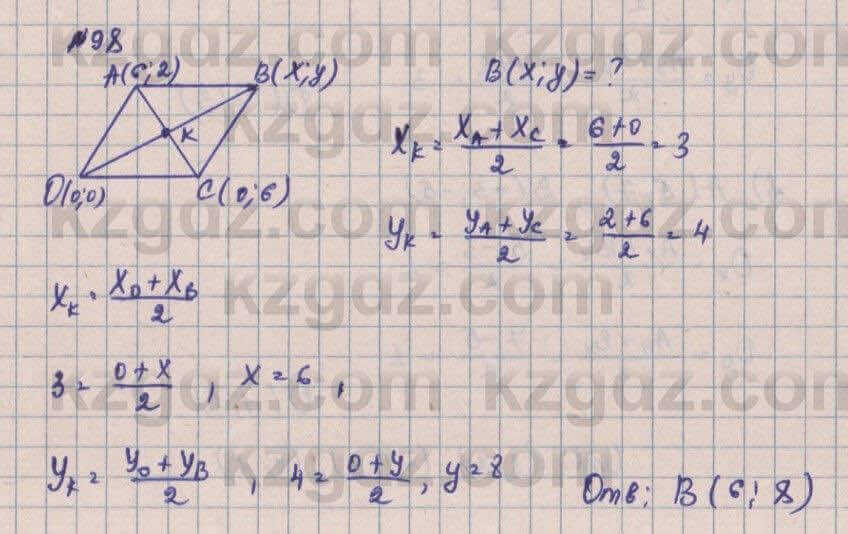 №98
A(6;2) B(x;y) B(x;y)=?
K
O(0;0) C(0;6)
x_K = (x_A + x_C)/2 = (6+0)/2 = 3
y_K = (y_A + y_C)/2 = (2+6)/2 = 4
x_K = (x_O + x_B)/2
3 = (0+x)/2 , x = 6 ,
y_K = (y_O + y_B)/2 , 4 = (0+y)/2 , y = 8
Отв: B(6;8)
kzgdz.com kzgdz.com
kzgdz.com kzgdz.com
kzgdz.com
kzgdz.com kzgdz.com
kzgdz.com